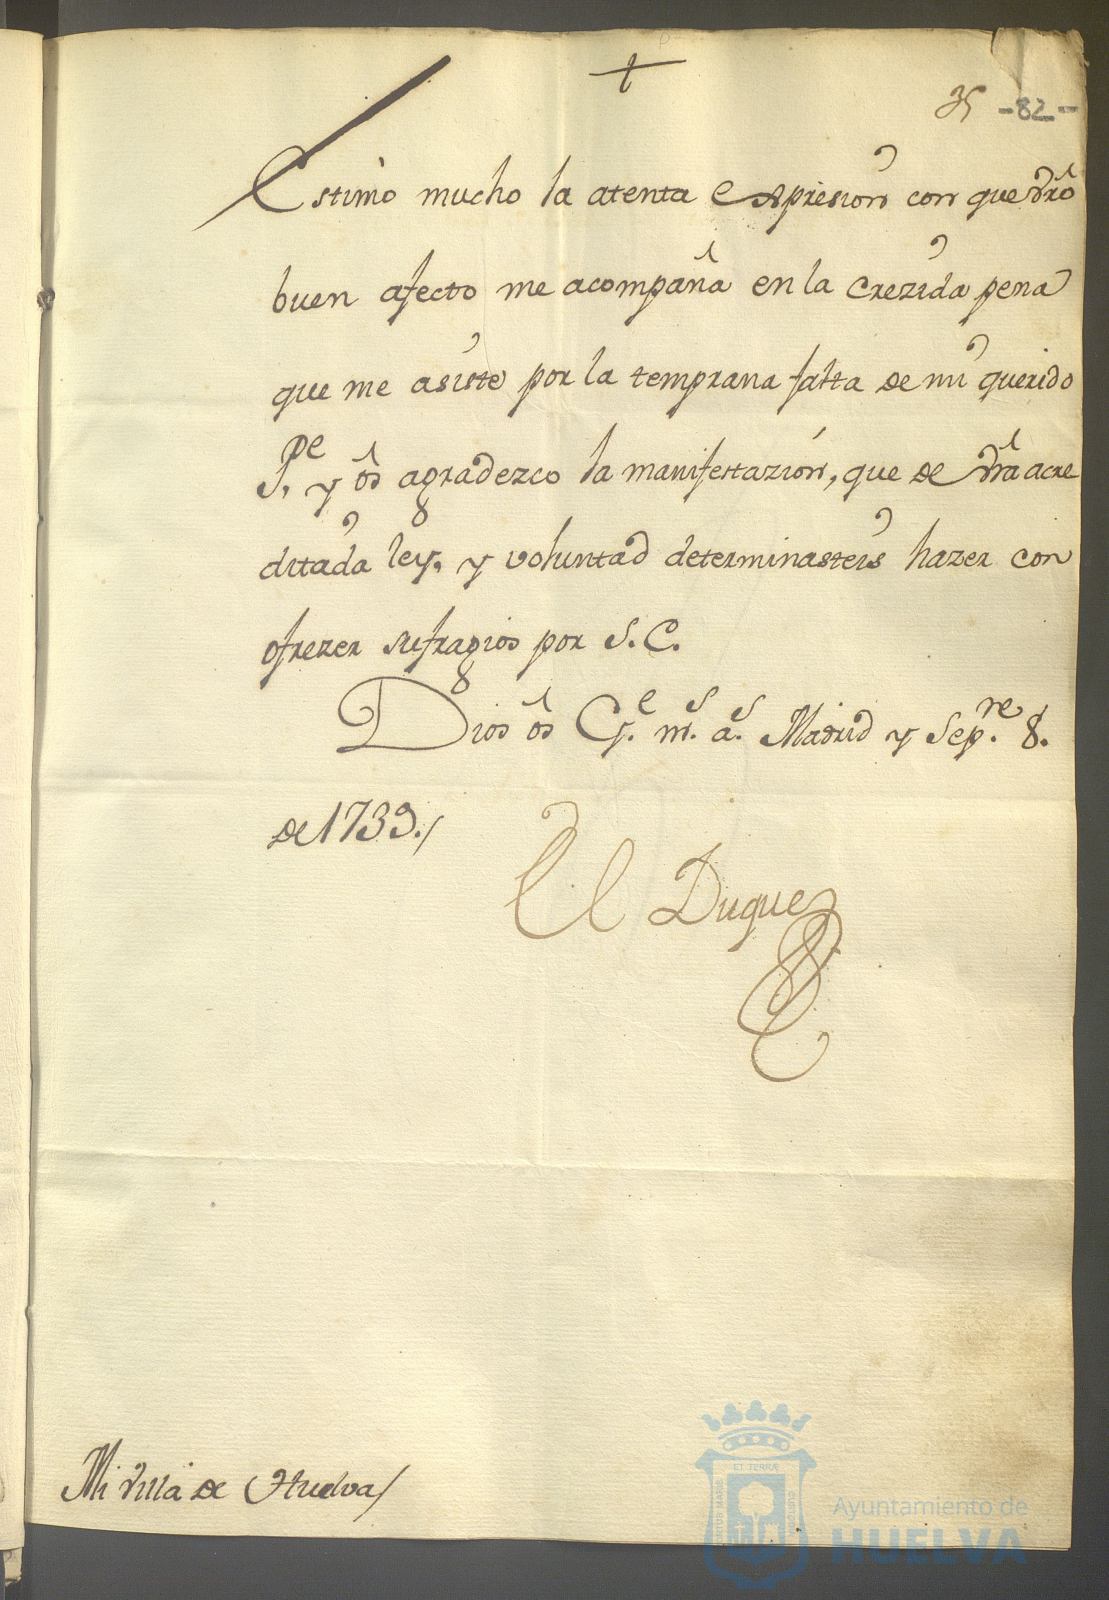 +
35 -82-
Estimo mucho la atenta expresion con que vrô
buen afecto me acompaña en la crezida pena
que me asiste por la temprana falta de mi querido
P.e y os agradezco la manifestazión, que de vrâ acre
ditada ley, y voluntad determinasteis hazer con
ofrezer sufragios por S.C.
Dios os G.e m.s a.s Madrid y Sep.re 8.
de 1739./
El Duque
Mi villa de Huelva/
Ayuntamiento de
HUELVA